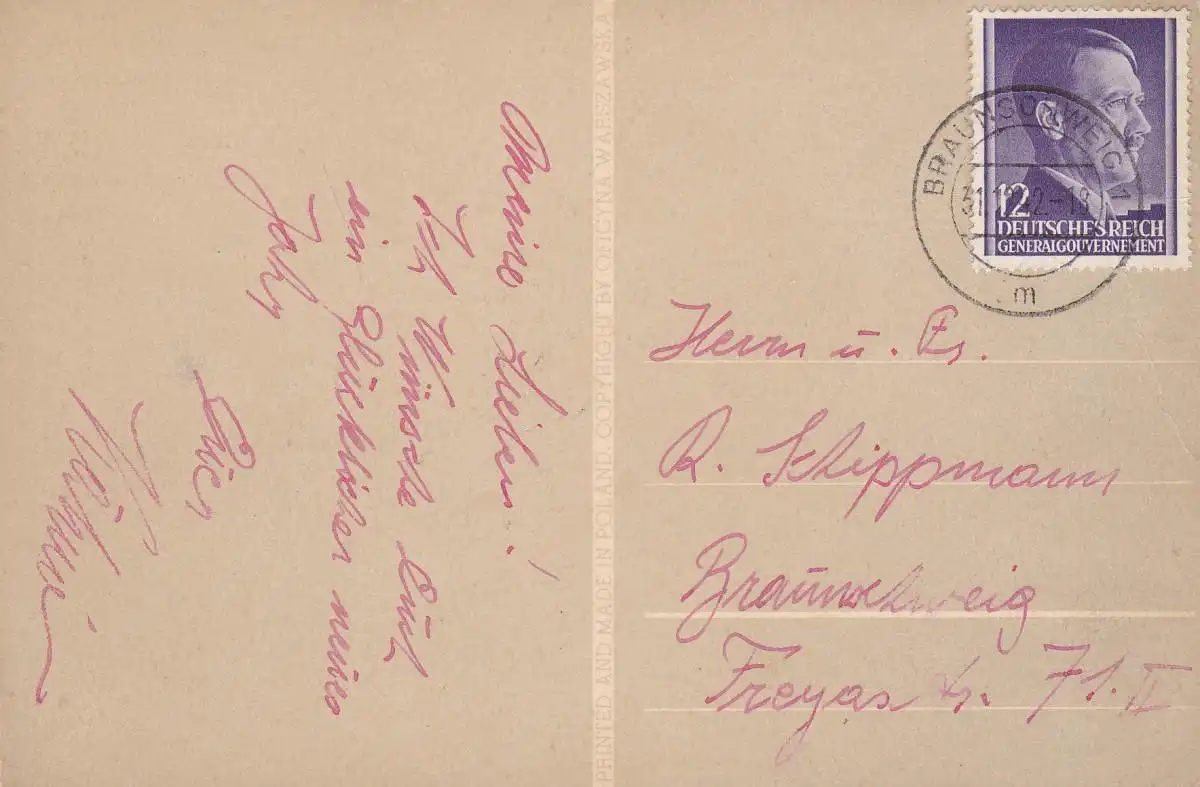 Meine Lieben!
Ich Wünsche Euch
ein Glückliches neues
Jahr
Euer
PRINTED AND MADE IN POLAND. COPYRIGHT BY ODBYNA WARSZAWSKA
12
DEUTSCHES REICH
GENERALGOUVERNEMENT
BRAUNSCHWEIG 1
m
Herrn u. Fr.
R. Schippmann
Braunschweig
Freyastr. 71. II